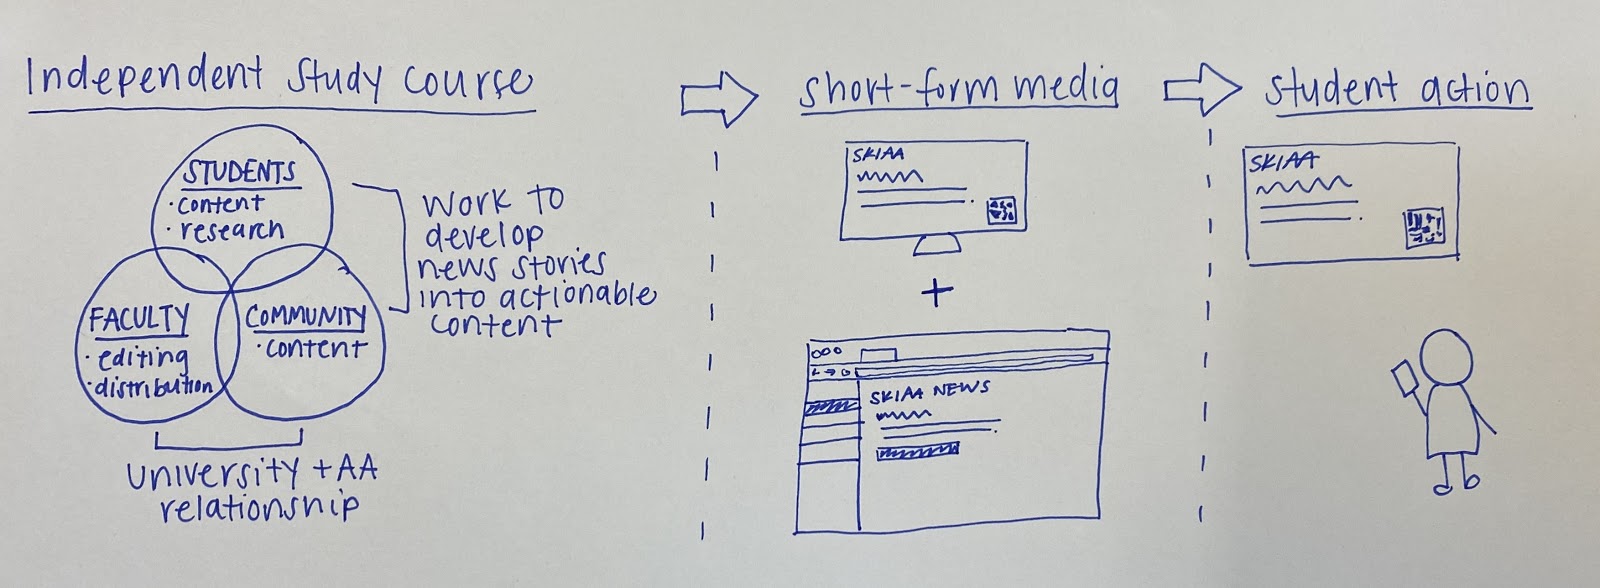 Independent study course
STUDENTS
· content
· research
FACULTY
· editing
· distribution
COMMUNITY
· content
WORK TO
develop
news stories
into actionable
content
university + AA
relationship
short-form media
SKIAA
+
SKIAA NEWS
student action
SKIAA